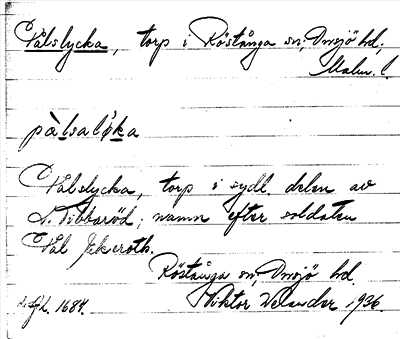 Pålslycka, torp i Röstånga sn, Onsjö hd,
Malm. l.
pàlsalý̀ka
Pålslycka, torp i sydl. delen av
S. Tibbaröd; namn efter soldaten
Pål Ekeroth.
Röstånga sn, Onsjö hd.
1684. Viktor Welander 1936.